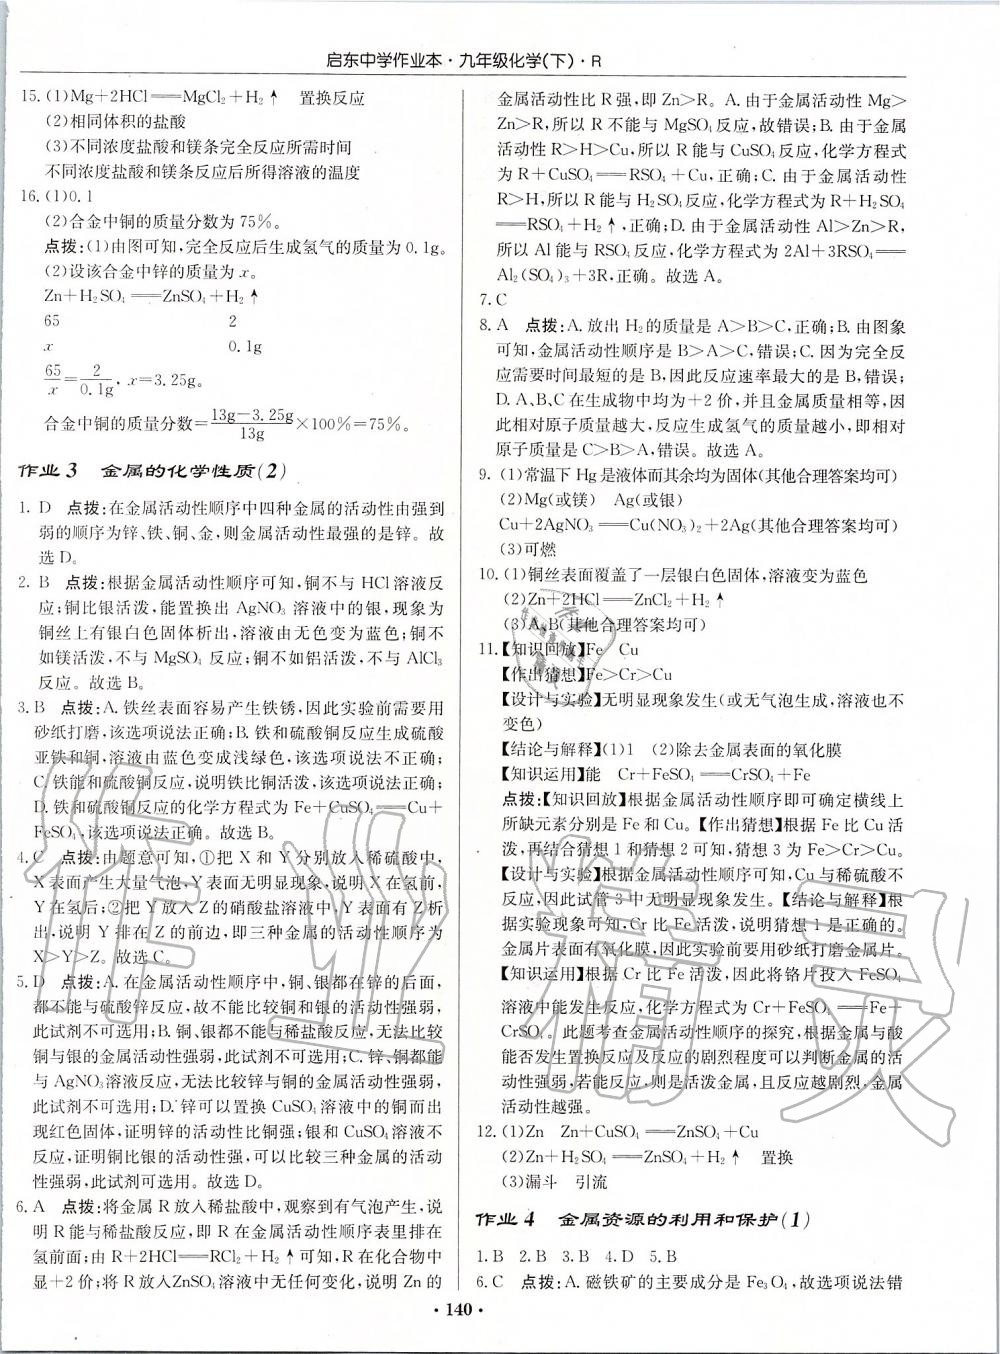 启东中学作业本·九年级化学(下)·R
15. (1)Mg+2HCl══MgCl₂+H₂↑　置换反应
(2)相同体积的盐酸
(3)不同浓度盐酸和镁条完全反应所需时间
不同浓度盐酸和镁条反应后所得溶液的温度
16. (1)0.1
(2)合金中铜的质量分数为75%。
点拨:(1)由图可知,完全反应后生成氢气的质量为0.1g。
(2)设该合金中锌的质量为x。
Zn+H₂SO₄══ZnSO₄+H₂↑
65　2
x　0.1g
65/x=2/0.1g,x=3.25g。
合金中铜的质量分数=(13g-3.25g)/13g×100%=75%。
作业3　金属的化学性质(2)
1. D　点拨:在金属活动性顺序中四种金属的活动性由强到
弱的顺序为锌、铁、铜、金,则金属活动性最强的是锌。故
选D。
2. B　点拨:根据金属活动性顺序可知,铜不与HCl溶液反
应;铜比银活泼,能置换出AgNO₃溶液中的银,现象为
铜丝上有银白色固体析出,溶液由无色变为蓝色;铜不
如镁活泼,不与MgSO₄反应;铜不如铝活泼,不与AlCl₃
反应。故选B。
3. B　点拨:A.铁丝表面容易产生铁锈,因此实验前需要用
砂纸打磨,该选项说法正确;B.铁和硫酸铜反应生成硫酸
亚铁和铜,溶液由蓝色变成浅绿色,该选项说法不正确;
C.铁能和硫酸铜反应,说明铁比铜活泼,该选项说法正确;
D.铁和硫酸铜反应的化学方程式为Fe+CuSO₄══Cu+
FeSO₄,该选项说法正确。故选B。
4. C　点拨:由题意可知,①把X和Y分别放入稀硫酸中,
X表面产生大量气泡,Y表面无明显现象,说明X在氢前,
Y在氢后;②把Y放入Z的硝酸盐溶液中,Y表面有Z析
出,说明Y排在Z的前边,即三种金属的活动性顺序为
X>Y>Z。故选C。
5. D　点拨:A.在金属活动性顺序中,铜、银都在锌的后面,
都不能与硫酸锌反应,故不能比较铜和银的活动性强弱,
此试剂不可选用;B.铜、银都不能与稀盐酸反应,无法比较
铜与银的金属活动性强弱,此试剂不可选用;C.锌、铜都能
与AgNO₃溶液反应,无法比较锌与铜的金属活动性强弱,
此试剂不可选用;D.锌可以置换CuSO₄溶液中的铜而出
现红色固体,证明锌的活动性比铜强;银和CuSO₄溶液不
反应,证明铜比银的活动性强,可以比较三种金属的活动
性强弱,此试剂可选用。故选D。
6. A　点拨:将金属R放入稀盐酸中,观察到有气泡产生,说
明R能与稀盐酸反应,即R在金属活动性顺序表里排在
氢前面;由R+2HCl══RCl₂+H₂↑可知,R在化合物中
显+2价;将R放入ZnSO₄溶液中无任何变化,说明Zn的
金属活动性比R强,即Zn>R。A.由于金属活动性Mg>
Zn>R,所以R不能与MgSO₄反应,故错误;B.由于金属
活动性R>H>Cu,所以R能与CuSO₄反应,化学方程式
为R+CuSO₄══RSO₄+Cu,正确;C.由于金属活动性
R>H,所以R能与H₂SO₄反应,化学方程式为R+H₂SO₄
══RSO₄+H₂↑,正确;D.由于金属活动性Al>Zn>R,
所以Al能与RSO₄反应,化学方程式为2Al+3RSO₄══
Al₂(SO₄)₃+3R,正确。故选A。
7. C
8. A　点拨:A.放出H₂的质量是A>B>C,正确;B.由图象
可知,金属活动性顺序是B>A>C,错误;C.因为完全反
应需要时间最短的是B,因此反应速率最大的是B,错误;
D.A、B、C在生成物中均为+2价,并且金属质量相等,因
此相对原子质量越大,反应生成氢气的质量越小,即相对
原子质量是C>B>A,错误。故选A。
9. (1)常温下Hg是液体而其余均为固体(其他合理答案均可)
(2)Mg(或镁)　Ag(或银)
Cu+2AgNO₃══Cu(NO₃)₂+2Ag(其他合理答案均可)
(3)可燃
10. (1)铜丝表面覆盖了一层银白色固体,溶液变为蓝色
(2)Zn+2HCl══ZnCl₂+H₂↑
(3)A、B(其他合理答案均可)
11.【知识回放】Fe　Cu
【作出猜想】Fe>Cr>Cu
【设计与实验】无明显现象发生(或无气泡生成,溶液也不
变色)
【结论与解释】(1)1　(2)除去金属表面的氧化膜
【知识运用】能　Cr+FeSO₄══CrSO₄+Fe
点拨:【知识回放】根据金属活动性顺序即可确定横线上
所缺元素分别是Fe和Cu。【作出猜想】根据Fe比Cu活
泼,再结合猜想1和猜想2可知,猜想3为Fe>Cr>Cu。
【设计与实验】根据金属活动性顺序可知,Cu与稀硫酸不
反应,因此试管3中无明显现象发生。【结论与解释】根
据实验现象可知,Cr比Fe活泼,说明猜想1是正确的。
金属片表面有氧化膜,因此实验前要用砂纸打磨金属片。
【知识运用】根据Cr比Fe活泼,因此将铬片投入FeSO₄
溶液中能发生反应,化学方程式为Cr+FeSO₄══Fe+
CrSO₄。此题考查金属活动性顺序的探究,根据金属与酸
能否发生置换反应及反应的剧烈程度可以判断金属的活
动性强弱,若能反应,则是活泼金属,且反应越剧烈,金属
活动性越强。
12. (1)Zn　Zn+CuSO₄══ZnSO₄+Cu
(2)Zn+H₂SO₄══ZnSO₄+H₂↑　置换
(3)漏斗　引流
作业4　金属资源的利用和保护(1)
1. B　2. B　3. B　4. D　5. B
6. C　点拨:A.磁铁矿的主要成分是Fe₃O₄,故选项说法错
·140·
作业精灵